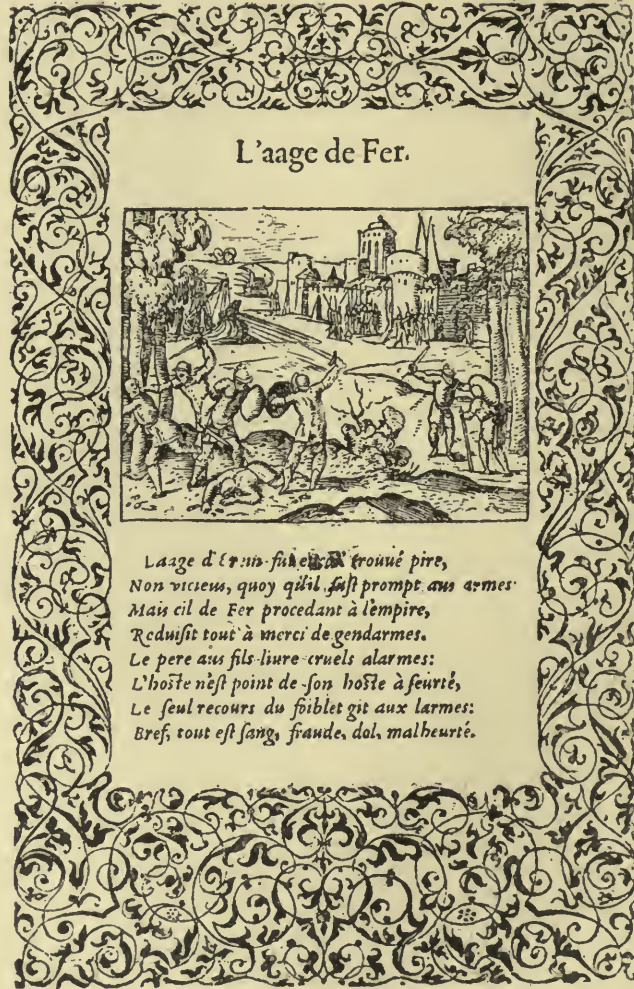 L'aage de Fer.
Laage d'Erain fut trouué pire,
Non vicieus, quoy qu'il fust prompt aus armes
Mais cil de Fer procedant à l'empire,
Reduisit tout à merci de gendarmes.
Le pere aus fils liure cruels alarmes:
L'hoste n'est point de son hoste à seurté,
Le seul recours du foiblet git aux larmes:
Bref, tout est sang, fraude, dol, malheurté.